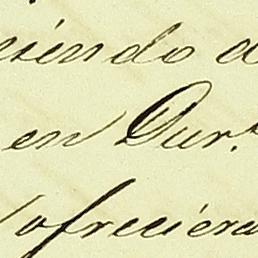 siendo a
en Dur.ᵉ
ofreciera